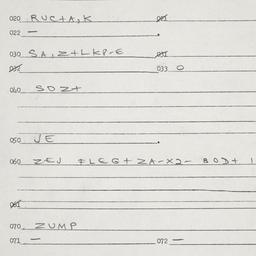 020 RUC+A,K 021
022 —
030 SA,Z+LKP-E 031
032 033 O
040 SDZ+
050 JE
060 ZEJ
061
070 ZUMP
071 — 072 —